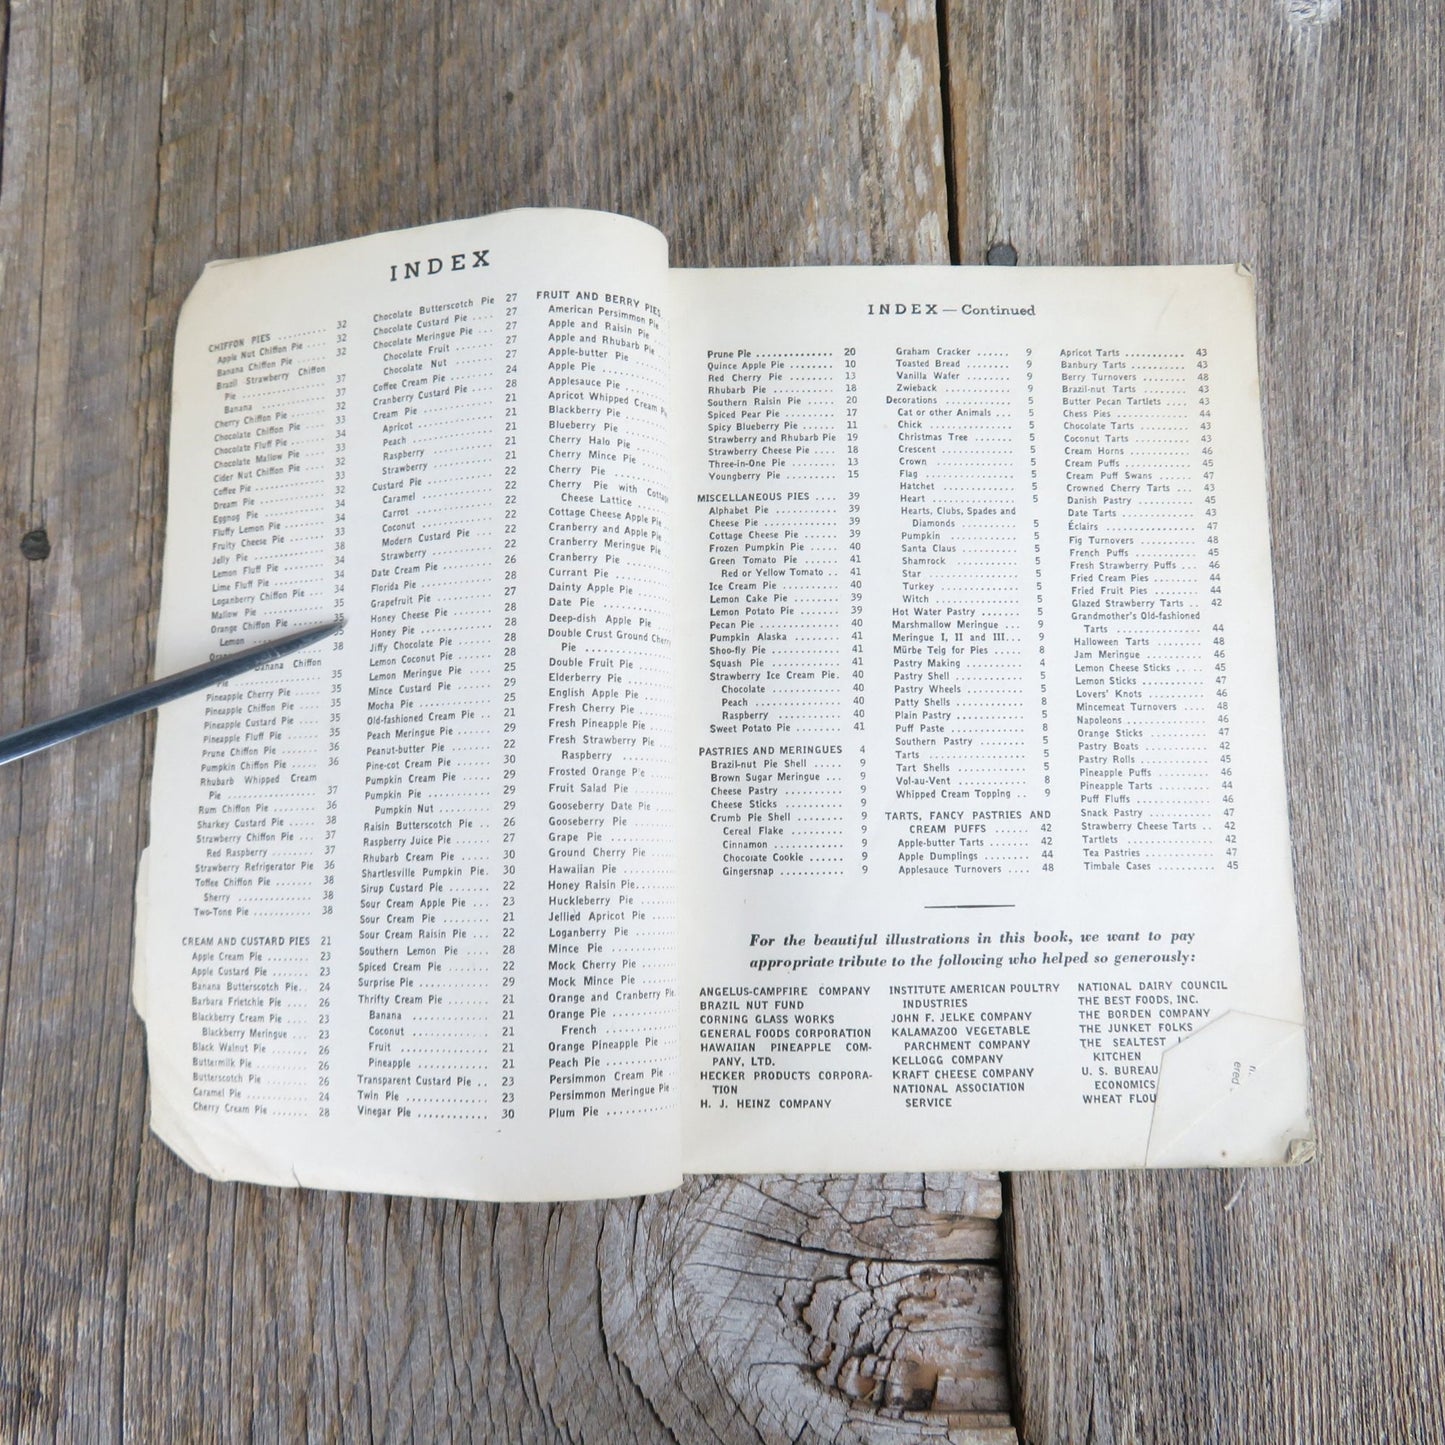 INDEX
CHIFFON PIES .......... 32
Apple Nut Chiffon Pie .... 32
Banana Chiffon Pie ..... 32
Brazil Strawberry Chiffon
Pie ............. 37
Banana ............ 37
Cherry Chiffon Pie ...... 32
Chocolate Chiffon Pie .... 33
Chocolate Fluff Pie ...... 34
Chocolate Mallow Pie .... 33
Cider Nut Chiffon Pie .... 32
Coffee Pie ............ 33
Dream Pie ............ 32
Eggnog Pie ............ 34
Fluffy Lemon Pie ........ 34
Fruity Cheese Pie ....... 33
Jelly Pie .............. 38
Lemon Fluff Pie ........ 34
Lime Fluff Pie .......... 34
Loganberry Chiffon Pie ... 34
Mallow Pie ............ 35
Orange Chiffon Pie ...... 35
Lemon
38
Banana Chiffon
Pie ............. 35
Pineapple Cherry Pie ..... 35
Pineapple Chiffon Pie .... 35
Pineapple Custard Pie .... 35
Pineapple Fluff Pie ...... 35
Prune Chiffon Pie ....... 36
Pumpkin Chiffon Pie ..... 36
Rhubarb Whipped Cream
Pie ............. 37
Rum Chiffon Pie ........ 36
Sharkey Custard Pie ..... 38
Strawberry Chiffon Pie ... 37
Red Raspberry ........ 37
Strawberry Refrigerator Pie 36
Toffee Chiffon Pie ....... 38
Sherry ............. 38
Two-Tone Pie .......... 38
CREAM AND CUSTARD PIES 21
Apple Cream Pie ........ 23
Apple Custard Pie ....... 23
Banana Butterscotch Pie.. 24
Barbara Frietchie Pie .... 26
Blackberry Cream Pie .... 23
Blackberry Meringue ... 23
Black Walnut Pie ....... 26
Buttermilk Pie .......... 26
Butterscotch Pie ........ 26
Caramel Pie ........... 24
Cherry Cream Pie ....... 28
Chocolate Butterscotch Pie 27
Chocolate Custard Pie .... 27
Chocolate Meringue Pie ... 27
Chocolate Fruit ....... 27
Chocolate Nut ........ 27
Coffee Cream Pie ....... 24
Cranberry Custard Pie .... 28
Cream Pie ............ 21
Apricot ............ 21
Peach ............. 21
Raspberry ........... 21
Strawberry .......... 21
Custard Pie ........... 22
Caramel ............ 22
Carrot ............. 22
Coconut ............ 22
Modern Custard Pie .... 22
Strawberry .......... 22
Date Cream Pie ......... 26
Florida Pie ............ 28
Grapefruit Pie .......... 27
Honey Cheese Pie ....... 28
Honey Pie ............. 28
Jiffy Chocolate Pie ...... 28
Lemon Coconut Pie ...... 28
Lemon Meringue Pie ..... 25
Mince Custard Pie ...... 29
Mocha Pie ............ 25
Old-fashioned Cream Pie .. 21
Peach Meringue Pie ..... 29
Peanut-butter Pie ....... 22
Pine-cot Cream Pie ...... 30
Pumpkin Cream Pie ...... 29
Pumpkin Pie ........... 29
Pumpkin Nut ......... 29
Raisin Butterscotch Pie ... 26
Raspberry Juice Pie ..... 27
Rhubarb Cream Pie ...... 30
Shartlesville Pumpkin Pie. 30
Sirup Custard Pie ....... 22
Sour Cream Apple Pie .... 23
Sour Cream Pie ......... 21
Sour Cream Raisin Pie ... 22
Southern Lemon Pie ..... 28
Spiced Cream Pie ....... 22
Surprise Pie ........... 29
Thrifty Cream Pie ....... 21
Banana ............. 21
Coconut ............ 21
Fruit .............. 21
Pineapple ........... 21
Transparent Custard Pie .. 23
Twin Pie .............. 23
Vinegar Pie ............ 30
FRUIT AND BERRY PIES
American Persimmon Pie
Apple and Raisin Pie
Apple and Rhubarb Pie
Apple-butter Pie
Apple Pie
Applesauce Pie
Apricot Whipped Cream Pie
Blackberry Pie
Blueberry Pie
Cherry Halo Pie
Cherry Mince Pie
Cherry Pie
Cherry Pie with Cottage
Cheese Lattice
Cottage Cheese Apple Pie
Cranberry and Apple Pie
Cranberry Meringue Pie
Cranberry Pie
Currant Pie
Dainty Apple Pie
Date Pie
Deep-dish Apple Pie
Double Crust Ground Cherry
Pie
Double Fruit Pie
Elderberry Pie
English Apple Pie
Fresh Cherry Pie
Fresh Pineapple Pie
Fresh Strawberry Pie
Raspberry
Frosted Orange Pie
Fruit Salad Pie
Gooseberry Date Pie
Gooseberry Pie
Grape Pie
Ground Cherry Pie
Hawaiian Pie
Honey Raisin Pie
Huckleberry Pie
Jellied Apricot Pie
Loganberry Pie
Mince Pie
Mock Cherry Pie
Mock Mince Pie
Orange and Cranberry Pie
Orange Pie
French
Orange Pineapple Pie
Peach Pie
Persimmon Cream Pie
Persimmon Meringue Pie
Plum Pie
INDEX — Continued
Prune Pie ............. 20
Quince Apple Pie ....... 10
Red Cherry Pie ........ 13
Rhubarb Pie ........... 18
Southern Raisin Pie ..... 20
Spiced Pear Pie ........ 17
Spicy Blueberry Pie ..... 11
Strawberry and Rhubarb Pie 19
Strawberry Cheese Pie ... 18
Three-in-One Pie ....... 13
Youngberry Pie ........ 15
MISCELLANEOUS PIES .... 39
Alphabet Pie .......... 39
Cheese Pie ............ 39
Cottage Cheese Pie ..... 39
Frozen Pumpkin Pie ..... 40
Green Tomato Pie ...... 41
Red or Yellow Tomato .. 41
Ice Cream Pie ......... 40
Lemon Cake Pie ........ 39
Lemon Potato Pie ...... 39
Pecan Pie ............. 40
Pumpkin Alaska ........ 41
Shoo-fly Pie ........... 41
Squash Pie ............ 41
Strawberry Ice Cream Pie. 40
Chocolate ........... 40
Peach .............. 40
Raspberry ........... 40
Sweet Potato Pie ....... 41
PASTRIES AND MERINGUES 4
Brazil-nut Pie Shell ..... 9
Brown Sugar Meringue ... 9
Cheese Pastry .......... 9
Cheese Sticks .......... 9
Crumb Pie Shell ........ 9
Cereal Flake ......... 9
Cinnamon ........... 9
Chocolate Cookie ...... 9
Gingersnap .......... 9
Graham Cracker ...... 9
Toasted Bread ........ 9
Vanilla Wafer ........ 9
Zwieback ........... 9
Decorations ............ 5
Cat or other Animals ... 5
Chick .............. 5
Christmas Tree ....... 5
Crescent ............ 5
Crown .............. 5
Flag ............... 5
Hatchet ............ 5
Heart .............. 5
Hearts, Clubs, Spades and
Diamonds .......... 5
Pumpkin ............ 5
Santa Claus ......... 5
Shamrock ........... 5
Star ............... 5
Turkey ............. 5
Witch .............. 5
Hot Water Pastry ....... 5
Marshmallow Meringue ... 9
Meringue I, II and III... 9
Mürbe Teig for Pies ..... 8
Pastry Making ......... 4
Pastry Shell ........... 5
Pastry Wheels ......... 5
Patty Shells ........... 8
Plain Pastry ........... 5
Puff Paste ............ 8
Southern Pastry ........ 5
Tarts ................ 5
Tart Shells ............ 5
Vol-au-Vent ........... 8
Whipped Cream Topping .. 9
TARTS, FANCY PASTRIES AND
CREAM PUFFS ...... 42
Apple-butter Tarts ...... 42
Apple Dumplings ....... 44
Applesauce Turnovers ... 48
Apricot Tarts .......... 43
Banbury Tarts ......... 43
Berry Turnovers ........ 48
Brazil-nut Tarts ........ 43
Butter Pecan Tartlets .... 43
Chess Pies ............ 44
Chocolate Tarts ........ 43
Coconut Tarts ......... 43
Cream Horns .......... 46
Cream Puffs ........... 45
Cream Puff Swans ...... 47
Crowned Cherry Tarts ... 43
Danish Pastry ......... 45
Date Tarts ............ 43
Éclairs ............... 47
Fig Turnovers .......... 48
French Puffs ........... 45
Fresh Strawberry Puffs ... 46
Fried Cream Pies ....... 44
Fried Fruit Pies ........ 44
Glazed Strawberry Tarts .. 42
Grandmother's Old-fashioned
Tarts ............. 44
Halloween Tarts ........ 48
Jam Meringue ......... 46
Lemon Cheese Sticks .... 45
Lemon Sticks .......... 47
Lovers' Knots .......... 46
Mincemeat Turnovers .... 48
Napoleons ............ 46
Orange Sticks .......... 47
Pastry Boats ........... 42
Pastry Rolls ........... 45
Pineapple Puffs ........ 46
Pineapple Tarts ........ 44
Puff Fluffs ............ 46
Snack Pastry .......... 47
Strawberry Cheese Tarts .. 42
Tartlets .............. 42
Tea Pastries ........... 47
Timbale Cases ......... 45
For the beautiful illustrations in this book, we want to pay
appropriate tribute to the following who helped so generously:
ANGELUS-CAMPFIRE COMPANY
BRAZIL NUT FUND
CORNING GLASS WORKS
GENERAL FOODS CORPORATION
HAWAIIAN PINEAPPLE COM-
PANY, LTD.
HECKER PRODUCTS CORPORA-
TION
H. J. HEINZ COMPANY
INSTITUTE AMERICAN POULTRY
INDUSTRIES
JOHN F. JELKE COMPANY
KALAMAZOO VEGETABLE
PARCHMENT COMPANY
KELLOGG COMPANY
KRAFT CHEESE COMPANY
NATIONAL ASSOCIATION
SERVICE
NATIONAL DAIRY COUNCIL
THE BEST FOODS, INC.
THE BORDEN COMPANY
THE JUNKET FOLKS
THE SEALTEST
KITCHEN
U. S. BUREAU
ECONOMICS
WHEAT FLOU
ered